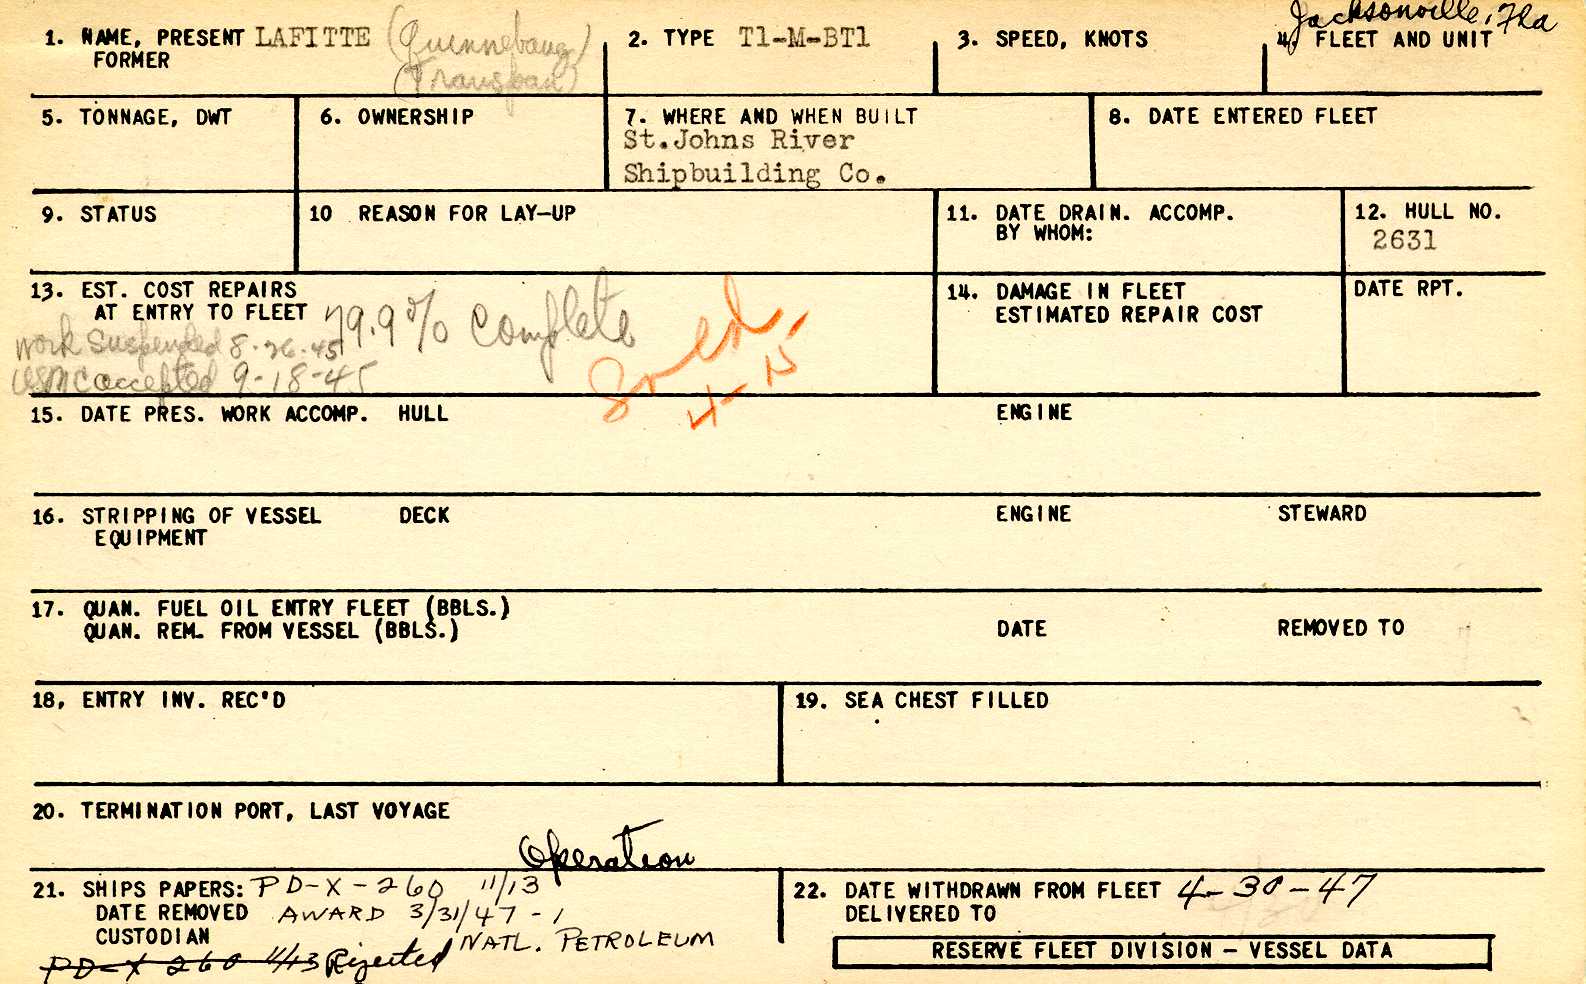 Jacksonville, Fla
1. NAME, PRESENT LAFITTE (Quinnebaug)
FORMER (Transpan)
2. TYPE T1-M-BT1
3. SPEED, KNOTS
4. FLEET AND UNIT
5. TONNAGE, DWT
6. OWNERSHIP
7. WHERE AND WHEN BUILT
St.Johns River
Shipbuilding Co.
8. DATE ENTERED FLEET
9. STATUS
10 REASON FOR LAY-UP
11. DATE DRAIN. ACCOMP.
BY WHOM:
12. HULL NO.
2631
13. EST. COST REPAIRS
AT ENTRY TO FLEET 79.9% Complete
Work Suspended 8-26-45
USMC accepted 9-18-45
4-15
14. DAMAGE IN FLEET
ESTIMATED REPAIR COST
DATE RPT.
15. DATE PRES. WORK ACCOMP. HULL ENGINE
16. STRIPPING OF VESSEL DECK ENGINE STEWARD
EQUIPMENT
17. QUAN. FUEL OIL ENTRY FLEET (BBLS.)
QUAN. REM. FROM VESSEL (BBLS.) DATE REMOVED TO
18, ENTRY INV. REC'D
19. SEA CHEST FILLED
20. TERMINATION PORT, LAST VOYAGE
Operation
21. SHIPS PAPERS: PD-X-260 11/13
DATE REMOVED AWARD 3/31/47 - 1
CUSTODIAN NATL. PETROLEUM
PD-X 260 11/13 Rejected
22. DATE WITHDRAWN FROM FLEET 4-30-47
DELIVERED TO
RESERVE FLEET DIVISION - VESSEL DATA